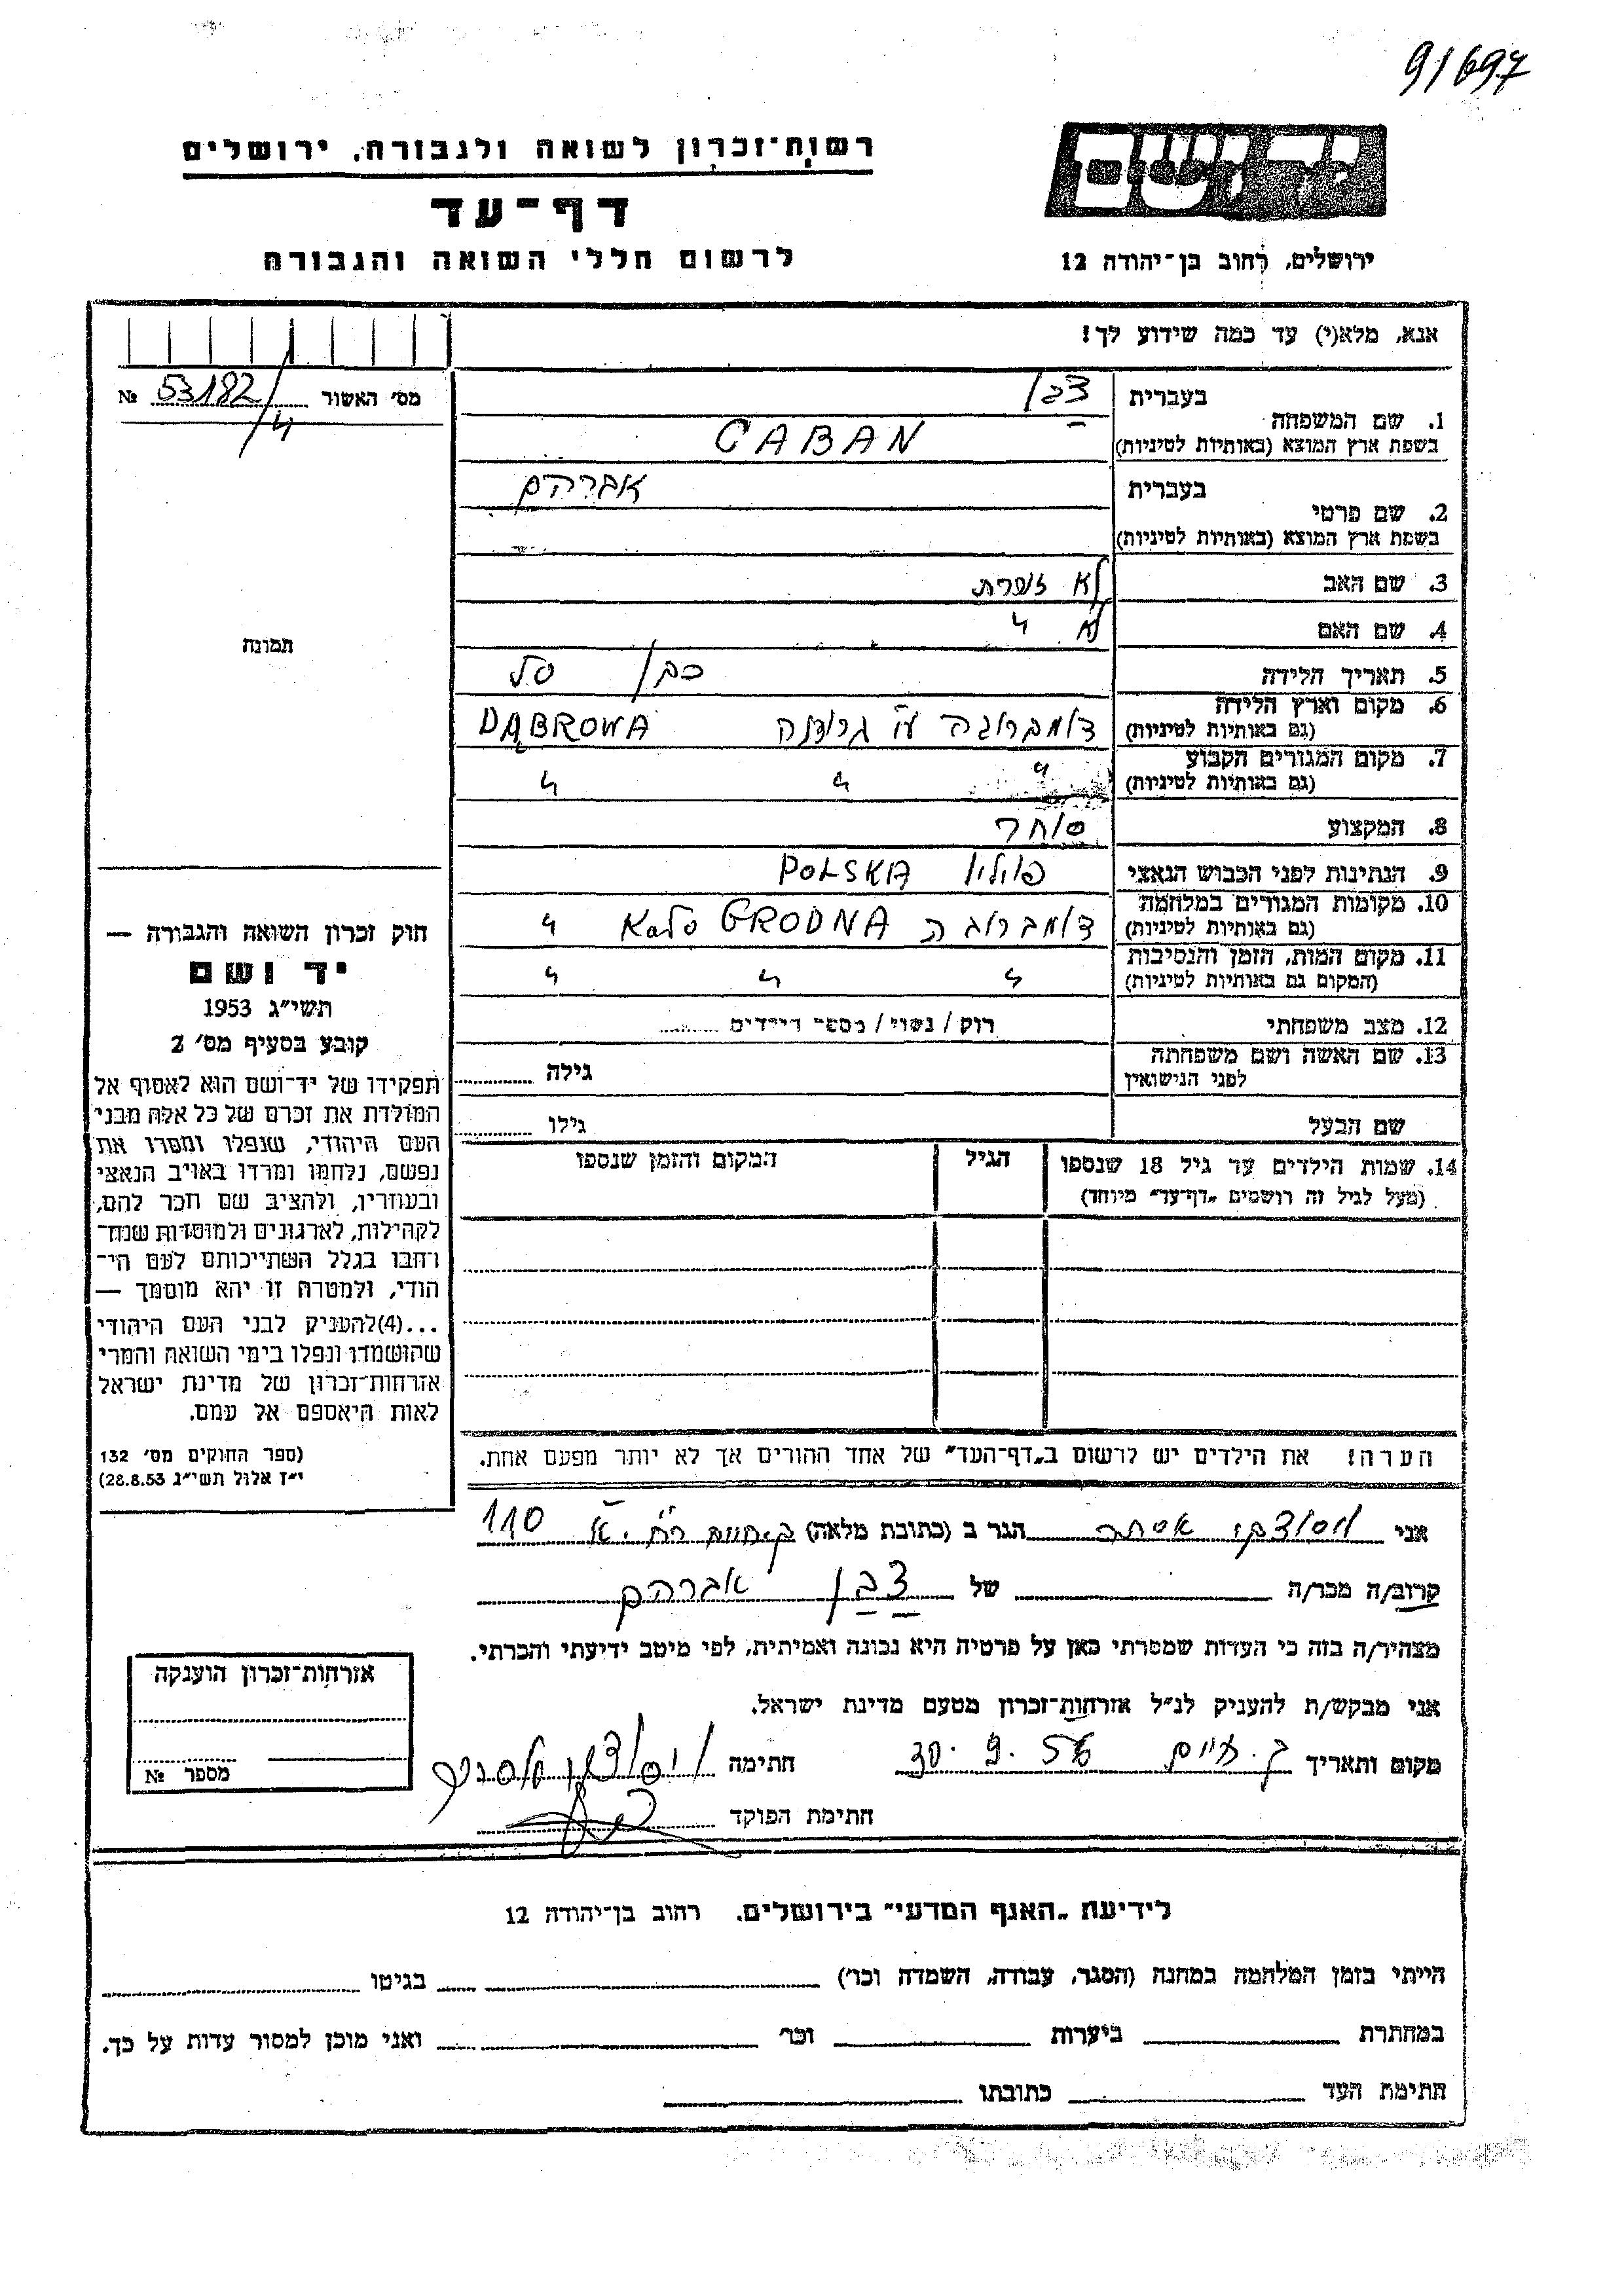 91697
רשות־זכרון לשואה ולגבורה, ירושלים
יד ושם
דף־עד
לרשום חללי השואה והגבורה
ירושלים, רחוב בן־יהודה 12
אנא, מלא(י) עד כמה שידוע לך!
מס׳ האשור 53182/4 №
1. שם המשפחה בעברית צבן
בשפת ארץ המוצא (באותיות לטיניות) CABAN
2. שם פרטי בעברית אברהם
בשפת ארץ המוצא (באותיות לטיניות)
3. שם האב לא זוכרת
4. שם האם לא "
5. תאריך הלידה כבן
6. מקום וארץ הלידה (גם באותיות לטיניות) דומברובה ע"י גרודנה DĄBROWA
7. מקום המגורים הקבוע (גם באותיות לטיניות) " " "
8. המקצוע סוחר
9. הנתינות לפני הכבוש הנאצי פולין POLSKA
10. מקומות המגורים במלחמה (גם באותיות לטיניות) דומברובה KoŁo GRODNA "
11. מקום המות, הזמן והנסיבות (המקום גם באותיות לטיניות) " " "
12. מצב משפחתי רוק / נשוי / מספר הילדים
13. שם האשה ושם משפחתה לפני הנישואין גילה
שם הבעל גילו
14. שמות הילדים עד גיל 18 שנספו הגיל המקום והזמן שנספו
(מעל לגיל זה רושמים „דף־עד״ מיוחד)
הערה! את הילדים יש לרשום ב„דף־העד״ של אחד ההורים אך לא יותר מפעם אחת.
תמונה
חוק זכרון השואה והגבורה —
יד ושם
תשי״ג 1953
קובע בסעיף מס׳ 2
תפקידו של יד־ושם הוא לאסוף אל
המולדת את זכרם של כל אלה מבני
העם היהודי, שנפלו ומסרו את
נפשם, נלחמו ומרדו באויב הנאצי
ובעוזריו, ולהציב שם וזכר להם,
לקהילות, לארגונים ולמוסדות שנח־
רבו בגלל השתייכותם לעם הי־
הודי, ולמטרה זו יהא מוסמך —
...(4) להעניק לבני העם היהודי
שהושמדו ונפלו בימי השואה והמרי
אזרחות־זכרון של מדינת ישראל
לאות היאספם אל עמם.
(ספר החוקים מס׳ 132
י״ז אלול תשי״ג 28.8.53)
אני אסתר הגר ב (כתובת מלאה) 110
קרוב/ה מכר/ה של צבן אברהם
מצהיר/ה בזה כי העדות שמסרתי כאן על פרטיה היא נכונה ואמיתית, לפי מיטב ידיעתי והכרתי.
אני מבקש/ת להעניק לנ״ל אזרחות־זכרון מטעם מדינת ישראל.
מקום ותאריך 30.9.56 חתימה
חתימת הפוקד
אזרחות־זכרון הוענקה
מספר №
לידיעת „האגף המדעי״ בירושלים, רחוב בן־יהודה 12
הייתי בזמן המלחמה במחנה (הסגר, עבודה, השמדה וכו׳) בגיטו
במחתרת ביערות וכו׳ ואני מוכן למסור עדות על כך.
חתימת העד כתובתו